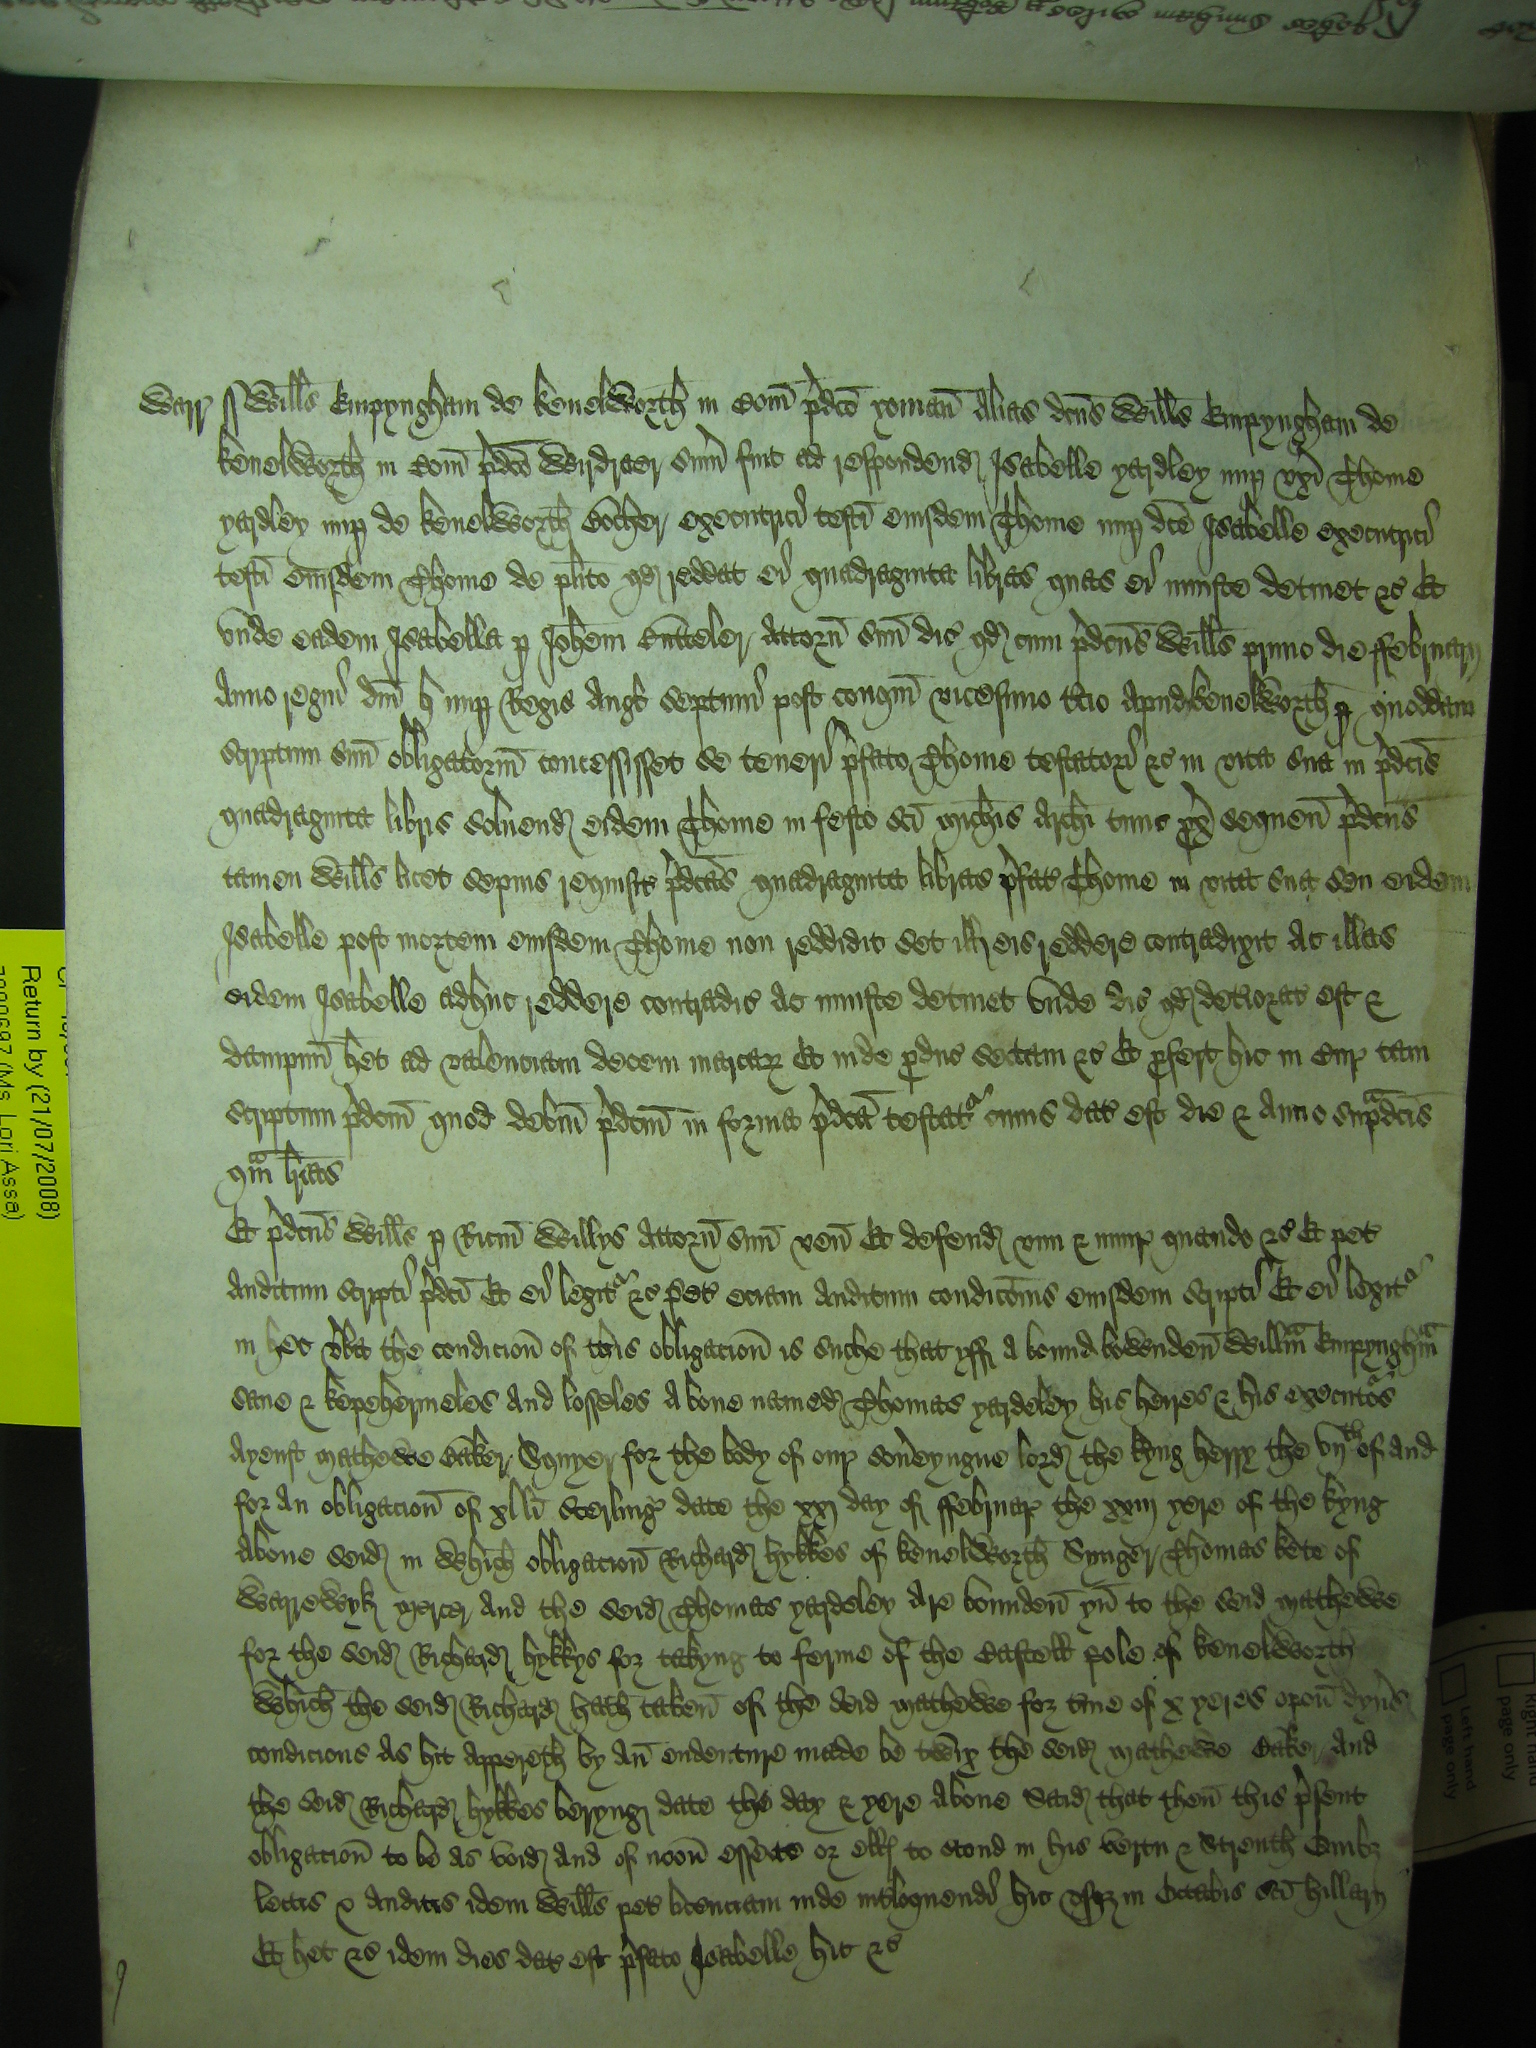 Warr ss Wills Empyngham de kenelworth in Com pdco yoman alias dcus Wills Empyngham de
kenelworth in Com pdco Wirdraer sum fuit ad respondend Isabelle yardley nup uxi Thome
yardley nup de kenelworth Bocher executrici testi eiusdem Thome nup dce Isabelle executrici
testi eiusdem Thome de plito qd reddat ei quadraginta libras quas ei iniuste detinet &c Et
unde eadem Isabella p Johem Cutteler Attorn suu dic qd cum pdcus Wills primo die ffebruarij
Anno regni dni h nup Regis Angl septimi post conqm vicesimo tcio Apud kenelworth p quoddam
scriptum suu obligatoriu concessisset se teneri pfato Thome testatori &c in vita sua in pdcis
quadraginta libris soluend eidem Thome in festo sci Michis Archi tunc px sequen pdcus
tamen Wills licet sepius requisit pdcas quadraginta libras pfat Thome in vita sua seu eidem
Isabelle post mortem eiusdem Thome non reddidit set ill eis reddere contradixit ac illas
eidem Isabelle adhuc reddere contradic ac iniuste detinet unde dic qd deteriorat est &
dampnu het ad valenciam decem marcar Et inde pduc sectam &c Et pfert hic in Cur tam
scriptum pdcm quod debm pdcm in forma pdca testat cuius dat est die & Anno supadcis
qm lras
Et pdcus Wills p Ricm Willys Attorn suu ven Et defend vim & iniur quando &c Et pet
auditum scripti pdci Et ei legit &c Pet eciam auditum condicois eiusdem scripti Et ei legit
in hec vba the condicion of this obligacion is suche that yff A bound bowenden Willm Empynghm
save & kepe hermeles And losseles Aboue named Thomas yardeley his heires & his executos
Ayenst Mathewe Baker Squyer for the body of our soueryngne lord the kyng herry the vijth of And
for An obligacion of xl li Sterling date the xxj day of ffebruar the xxiij yere of the kyng
Aboue seid in Which obligacion Richard hykkes of kenelworth Synger Thomas kete of
Warrewyk Mercer And the seid Thomas yardeley Are bounden yn to the seid Mathewe
for the seid Richard hykkys for takyng to ferme of the Castell pole of kenelworth
Which the seid Richard hath taken of the seid Mathewe for tme of x yeres opon dyus
condicions As hit Appereth by An endenture made be twix the seid Mathewe Baker And
the seid Richard hykkes beryng date the day & yere Aboue Said that then this psent
obligacion to be as void And of noon effecte or ell to stond in his vertu & Strenth Quibz
lectis & auditis idem Wills pet licenciam inde intloquendi hic usqz in Octabis sci hillarij
Et het &c idem dies dat est pfato Isabelle hic &c
Return by (21/07/2008)
(Ms. Lori Assa)
Right hand
page only
Left hand
page only